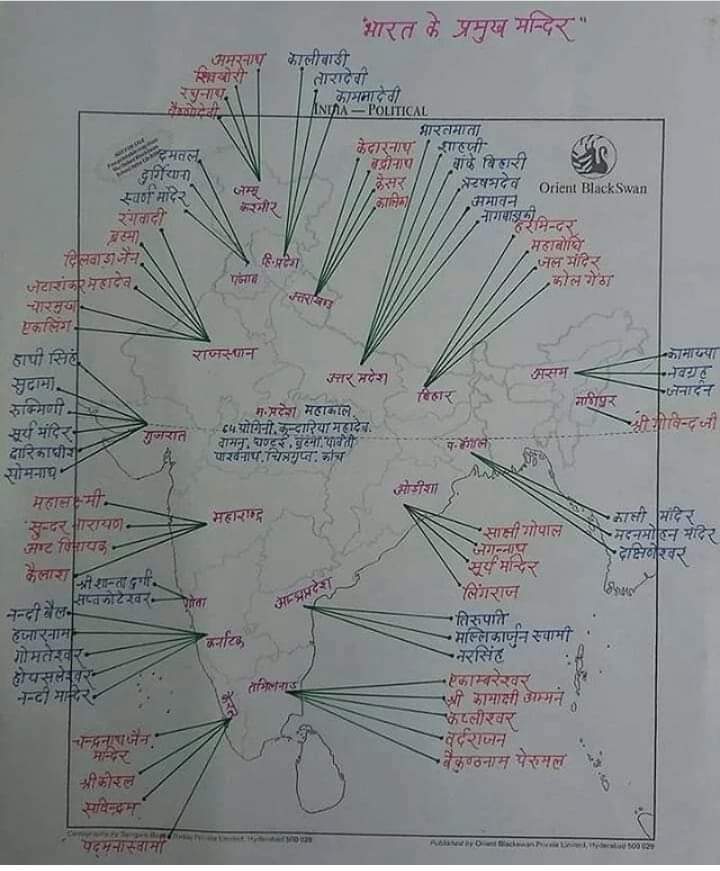 "भारत के प्रमुख मन्दिर"
INDIA — POLITICAL
Orient BlackSwan
अमरनाथ
शिवखोरी
रघुनाथ
वैष्णोदेवी
जम्मू
कश्मीर
कालीबाडी
तारादेवी
कामनादेवी
हि.प्रदेश
दुर्गियाना
स्वर्ण मंदिर
पंजाब
केदारनाथ
बद्रीनाथ
केसर
कालिका
उत्तराखण्ड
भारतमाता
शाहजी
बांके बिहारी
ऋषभदेव
उत्तर प्रदेश
हरमिन्दर
महाबोधि
जल मंदिर
कोल गेठा
बिहार
रंगवादी
ब्रह्मा
दिलवाडा जैन
जटाशंकर महादेव
चारमुखा
एकलिंग
राजस्थान
कामाख्या
नवग्रह
जनार्दन
असम
मणिपुर
श्री गोविन्द जी
हाथी सिंह
सुदामा
रुकमिणी
सूर्य मंदिर
द्वारिकाधीश
सोमनाथ
गुजरात
म.प्रदेश महाकाल
64 योगिनी, कन्दारिया महादेव
पार्श्वनाथ, चित्रगुप्त, कांच
प. बंगाल
काली मंदिर
मदनमोहन मंदिर
दक्षिणेश्वर
महालक्ष्मी
सुन्दर नारायण
अष्ट विनायक
कैलाश
महाराष्ट्र
ओडीशा
साक्षी गोपाल
जगन्नाथ
सूर्य मन्दिर
लिंगराज
श्री शान्ता दुर्गा
सप्तकोटेश्वर
गोवा
आन्ध्रप्रदेश
तिरुपति
मल्लिकार्जुन स्वामी
नरसिंह
नन्दी बैल
हजारनाम
गोमतेश्वर
होयसलेश्वर
नन्दी मन्दिर
कर्नाटक
तमिलनाडु
एकाम्बरेश्वर
श्री कामाक्षी अम्मन
कपलीश्वर
वर्दराजन
बैकुण्ठनाम पेरूमल
केरल
चन्द्रनाथ जैन
मन्दिर
श्रीकोरल
सविन्द्रम
पद्मनास्वामी
Published by Orient Blackswan Private Limited, Hyderabad 500 029